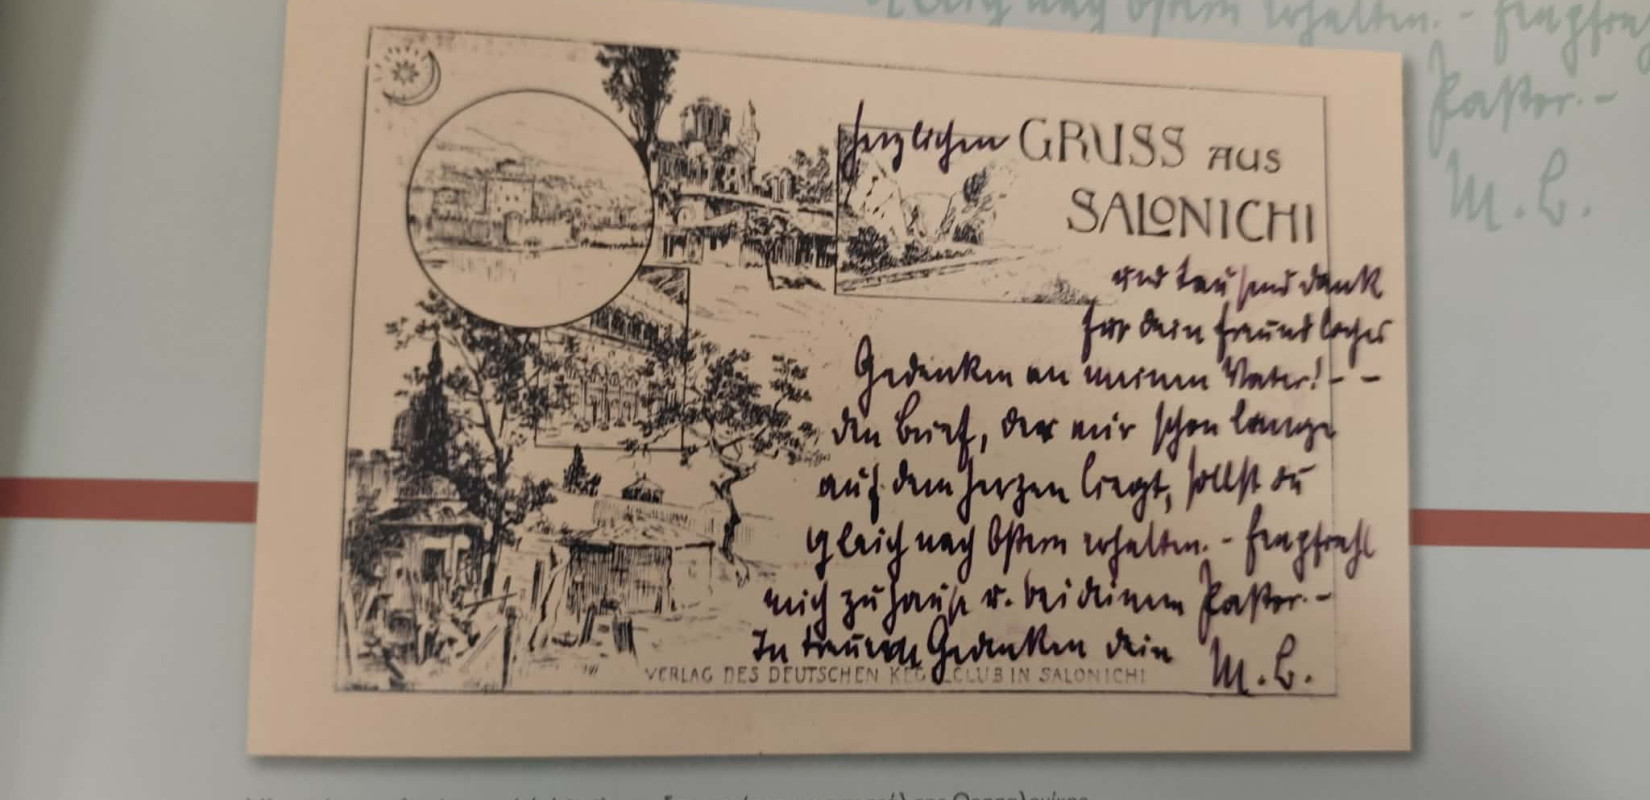 Gleich nach Ostern erhalten. - Empfiehl
Pastor. -
M. B.
Herzlichen GRUSS AUS
SALONICHI
und tausend Dank
für dein freundliches
Gedenken an meinen Vater! - -
den Brief, der mir schon lange
auf dem Herzen liegt, sollst du
gleich nach Ostern erhalten. - Empfiehl
mich zu Hause u. bei deinem Pastor. -
In treuem Gedenken dein
M. B.
VERLAG DES DEUTSCHEN KEGELCLUB IN SALONICHI